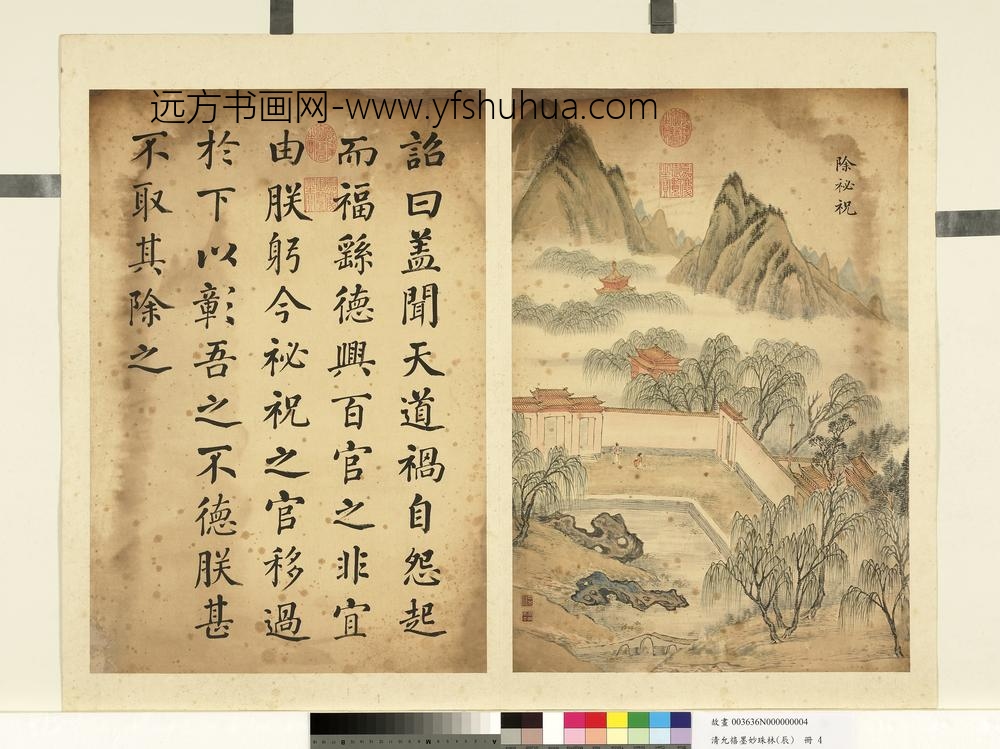 远方书画网-www.yfshuhua.com
除祕祝
詔曰盖聞天道禍自怨起
而福繇德興百官之非宜
由朕躬今祕祝之官移過
於下以彰吾之不德朕甚
不取其除之
故畫 003636N000000004
清允禧墨妙珠林(辰) 冊 4